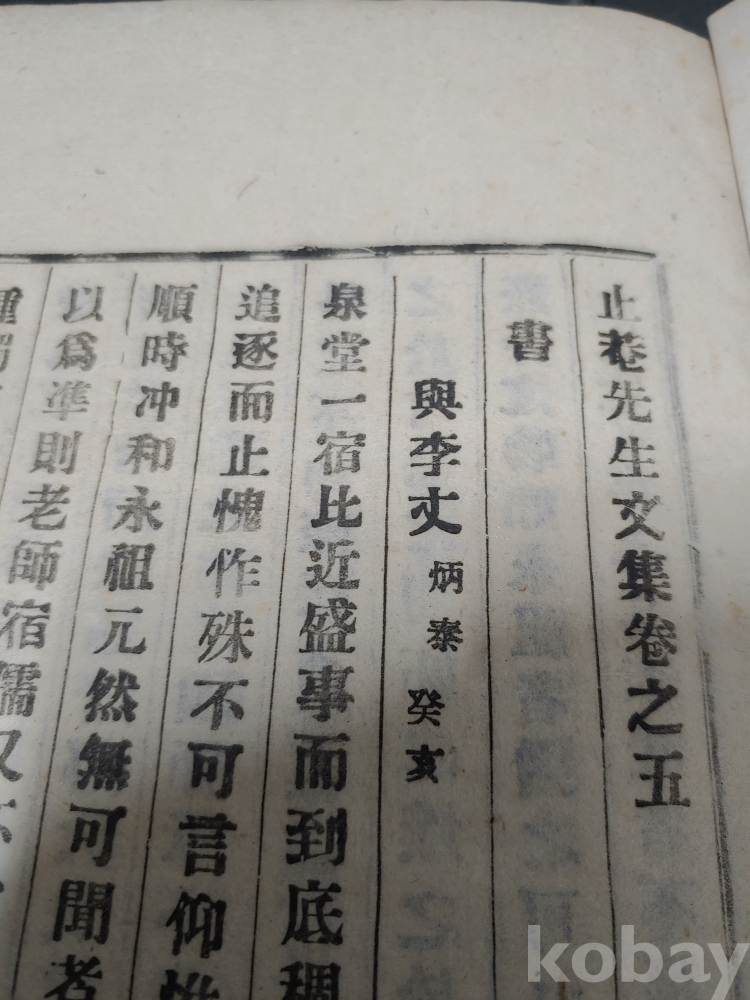 止菴先生文集卷之五
書
與李丈 炳泰 癸亥
泉堂一宿比近盛事而到底稠
追逐而止愧怍殊不可言仰惟
順時冲和永祖兀然無可聞者
以爲準則老師宿儒又不
kobay